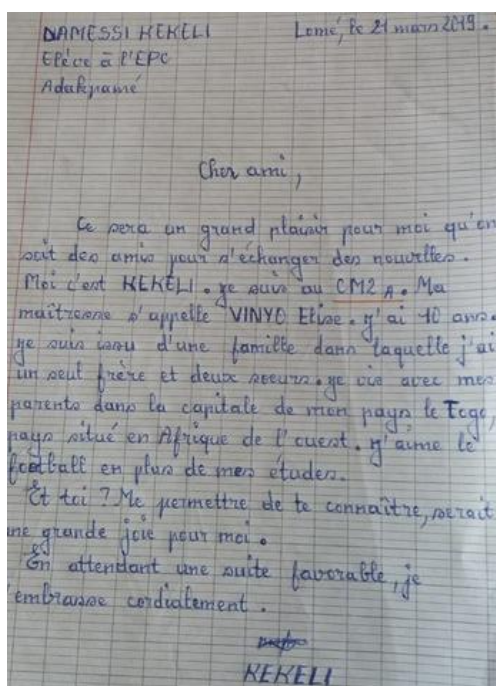 DAMESSI KEKELI Lomé, le 21 mars 2019.
Elève à l'EPC
Adakpamé
Cher ami,
Ce sera un grand plaisir pour moi qu'on
soit des amis pour s'échanger des nouvelles.
Moi c'est KEKELI. je suis au CM2 A. Ma
maîtresse s'appelle VINYO Elise. j'ai 10 ans.
je suis issu d'une famille dans laquelle j'ai
un seul frère et deux soeurs. je vis avec mes
parents dans la capitale de mon pays le Togo,
pays situé en Afrique de l'ouest. j'aime le
football en plus de mes études.
Et toi ? Me permettre de te connaître, serait
une grande joie pour moi.
En attendant une suite favorable, je
t'embrasse cordialement.
KEKELI